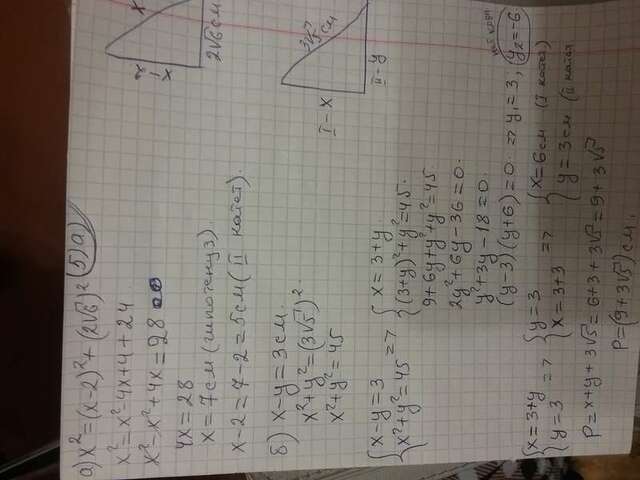 а) x² = (x-2)² + (2√6)² 5) а)
x² = x² - 4x + 4 + 24
x² - x² + 4x = 28
4x = 28
x = 7 см (гипотенуз).
x - 2 = 7 - 2 = 5 см (II катет).
x - 2
x
2√6 см
б) x - y = 3 см.
x² + y² = (3√5)²
x² + y² = 45
I - x
3√5 см
II - y
{ x - y = 3
x² + y² = 45 => { x = 3 + y
(3+y)² + y² = 45.
9 + 6y + y² + y² = 45.
2y² + 6y - 36 = 0.
y² + 3y - 18 = 0.
(y-3)(y+6) = 0. => y₁ = 3; y₂ = -6
{ x = 3 + y
y = 3 => { y = 3
x = 3 + 3 => { x = 6 см (I катет)
y = 3 см (II катет
P = x + y + 3√5 = 6 + 3 + 3√5 = 9 + 3√5
P = (9 + 3√5) см.